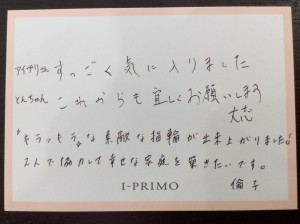 アイプリさん すっごく気に入りました
とんちゃん これからも宜しくお願いします
大志
"キラッキラ"な素敵な指輪が出来上がりました!
2人で協力して幸せな家庭を築きたいです。
倫子
I-PRIMO